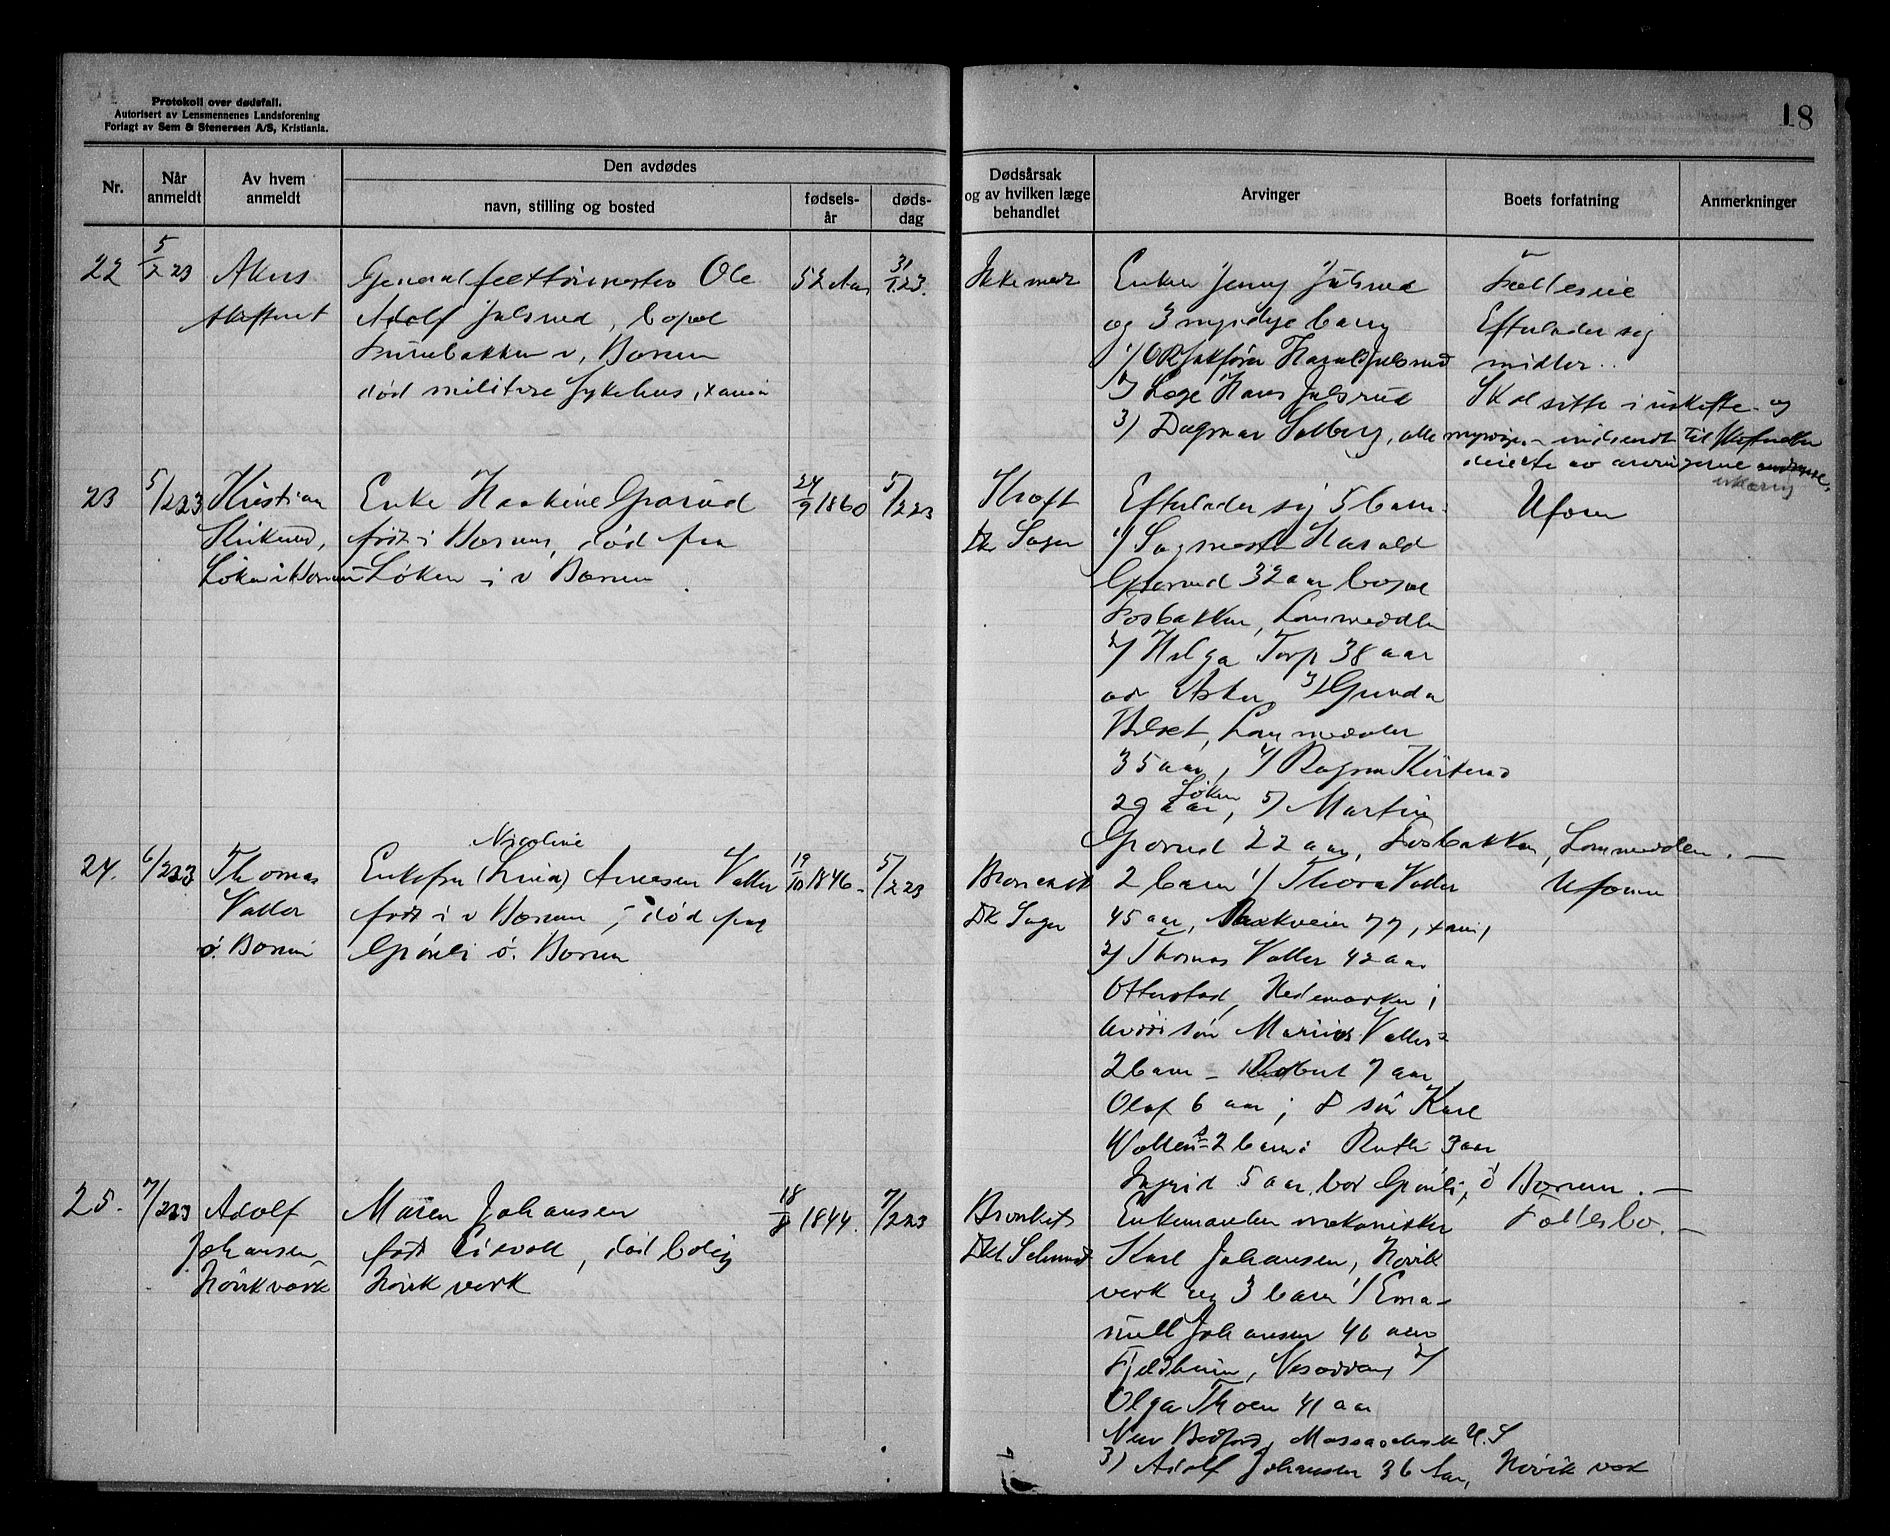 Protokoll over dødsfall.
Autorisert av Lensmennenes Landsforening
Forlagt av Sem & Stenersen A/S, Kristiania.
18
Nr.
Når anmeldt
Av hvem anmeldt
Den avdødes
navn, stilling og bosted
fødsels-år
døds-dag
Dødsårsak og av hvilken læge behandlet
Arvinger
Boets forfatning
Anmerkninger
22
5/2 23
Akers
Generalfelttøimester Ole
Adolf Julsrud, bopæl
v. Bærum
død militære sykehus,
52 Aar
31/1 23.
Enken Jenny Julsrud
og 3 myndige barn
1/ Harald Julsrud
2/ Læge Hans Julsrud
3) Dagmar Solberg, alle
Fælleseie
Efterlader sig
midler.
sitte i uskifte og
til
av arvingerne
23
5/2 23
Kristian
Løken i Bærum
Enke Haakine Gorud
født i Bærum, død fra
Løken i v Bærum
24/9 1860
5/2 23
Kræft
Dr Sager
Efterlader sig 5 barn
1/ Sagmester Harald
32 aar bopæl
Fosbakken, Lommedalen
2/ Helga Torp 38 aar
Asker 3/ Gunda
Lommedalen
35 aar, 4/ Ragna
Løken
29 aar, 5/ Martin
22 aar, Fosbakken, Lommedalen. —
Uforn
24.
6/2 23
Thomas
Valler
ø. Bærum
Nicoline
Enkefru (Lina) Andersen Valler
født i v Bærum, død fra
Grønli ø. Bærum
19/10 1846
5/2 23
Dr Sager
2 barn 1/ Thora Valler
45 aar, Parkveien 77,
2/ Thomas Valler 42 aar
Ottestad, Hedemarken;
søn Marius Vallers
2 barn – Robert 7 aar
Olaf 6 aar; søn Karl
Vallers 2 barn: Ruth 3 aar
Ingrid 5 aar, bor Grønli, ø Bærum. —
Uforn
25.
7/2 23
Adolf
Johansen
Høvik værk
Maren Johansen
født Eidsvoll, død bolig
Høvik verk
18/8 1844.
7/2 23
Bronkit
Enkemanden mekaniker
Karl Johansen, Høvik
verk og 3 barn 1/ Ema-
nuel Johansen 46 aar
Fjeldheim, 2/
Olga Thoen 41 aar
New Bedford, U.S
3) Adolf Johansen 36 Aar, Høvik verk
Fællesbo. —